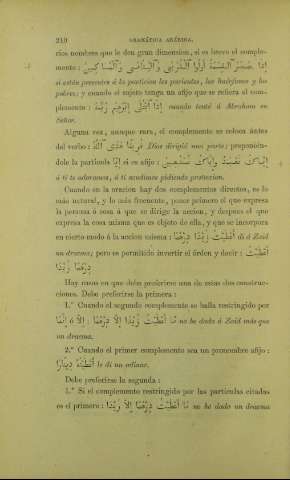 210 GRAMÁTICA ARÁBIGA.
rios nombres que le den gran dimension, si es breve el comple-
mento: إِذَا حَضَرَ ٱلْقِسْمَةَ أُولُوا ٱلْقُرْبَى وَٱلْيَتَامَى وَٱلْمَسَاكِينُ
si están presentes á la particion los parientes, los huérfanos y los
pobres; y cuando el sujeto tenga un afijo que se refiera al com-
plemento: إِذَا ٱبْتَلَى إِبْرٰهِيمَ رَبُّهُ cuando tentó á Abraham su
Señor.
Alguna vez, aunque rara, el complemento se coloca ántes
del verbo: فَرِيقًا هَدَى ٱللّٰهُ Dios dirigió una parte; preponién-
dole la partícula إِيَّا si es afijo: إِيَّاكَ نَعْبُدُ وَإِيَّاكَ نَسْتَعِينُ
á ti te adoramos, á ti acudimos pidiendo proteccion.
Cuando en la oracion hay dos complementos directos, es lo
más natural, y lo más frecuente, poner primero el que expresa
la persona ó cosa á que se dirige la accion, y despues el que
expresa la cosa misma que es objeto de ella, y que se incorpora
en cierto modo á la accion misma: أَعْطَيْتُ زَيْدًا دِرْهَمًا dí á Zeid
un dracma; pero es permitido invertir el órden y decir: أَعْطَيْتُ
دِرْهَمًا زَيْدًا
Hay casos en que debe preferirse una de estas dos construc-
ciones. Debe preferirse la primera:
1.º Cuando el segundo complemento se halla restringido por
إِلَّا ó إِنَّمَا: مَا أَعْطَيْتُ زَيْدًا إِلَّا دِرْهَمًا no he dado á Zeid más que
un dracma.
2.º Cuando el primer complemento sea un pronombre afijo:
أَعْطَيْتُهُ دِينَارًا le dí un
Debe preferirse la segunda:
1.º Si el complemento restringido por las partículas citadas
es el primero: مَا أَعْطَيْتُ دِرْهَمًا إِلَّا زَيْدًا no he dado un dracma